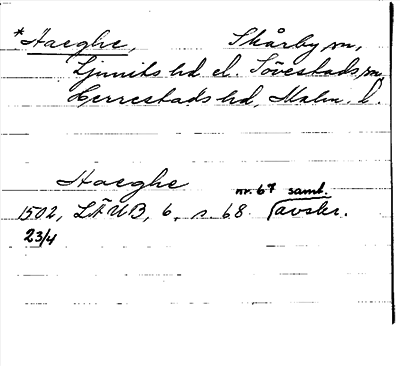 *Haeghe, Skårby sn,
Ljunits hd el. Sövestads sn,
Herrestads hd, Malm. l.
Haeghe
nr. 67 samt.
1502, LÄUB, 6, s. 68 avskr.
23/4